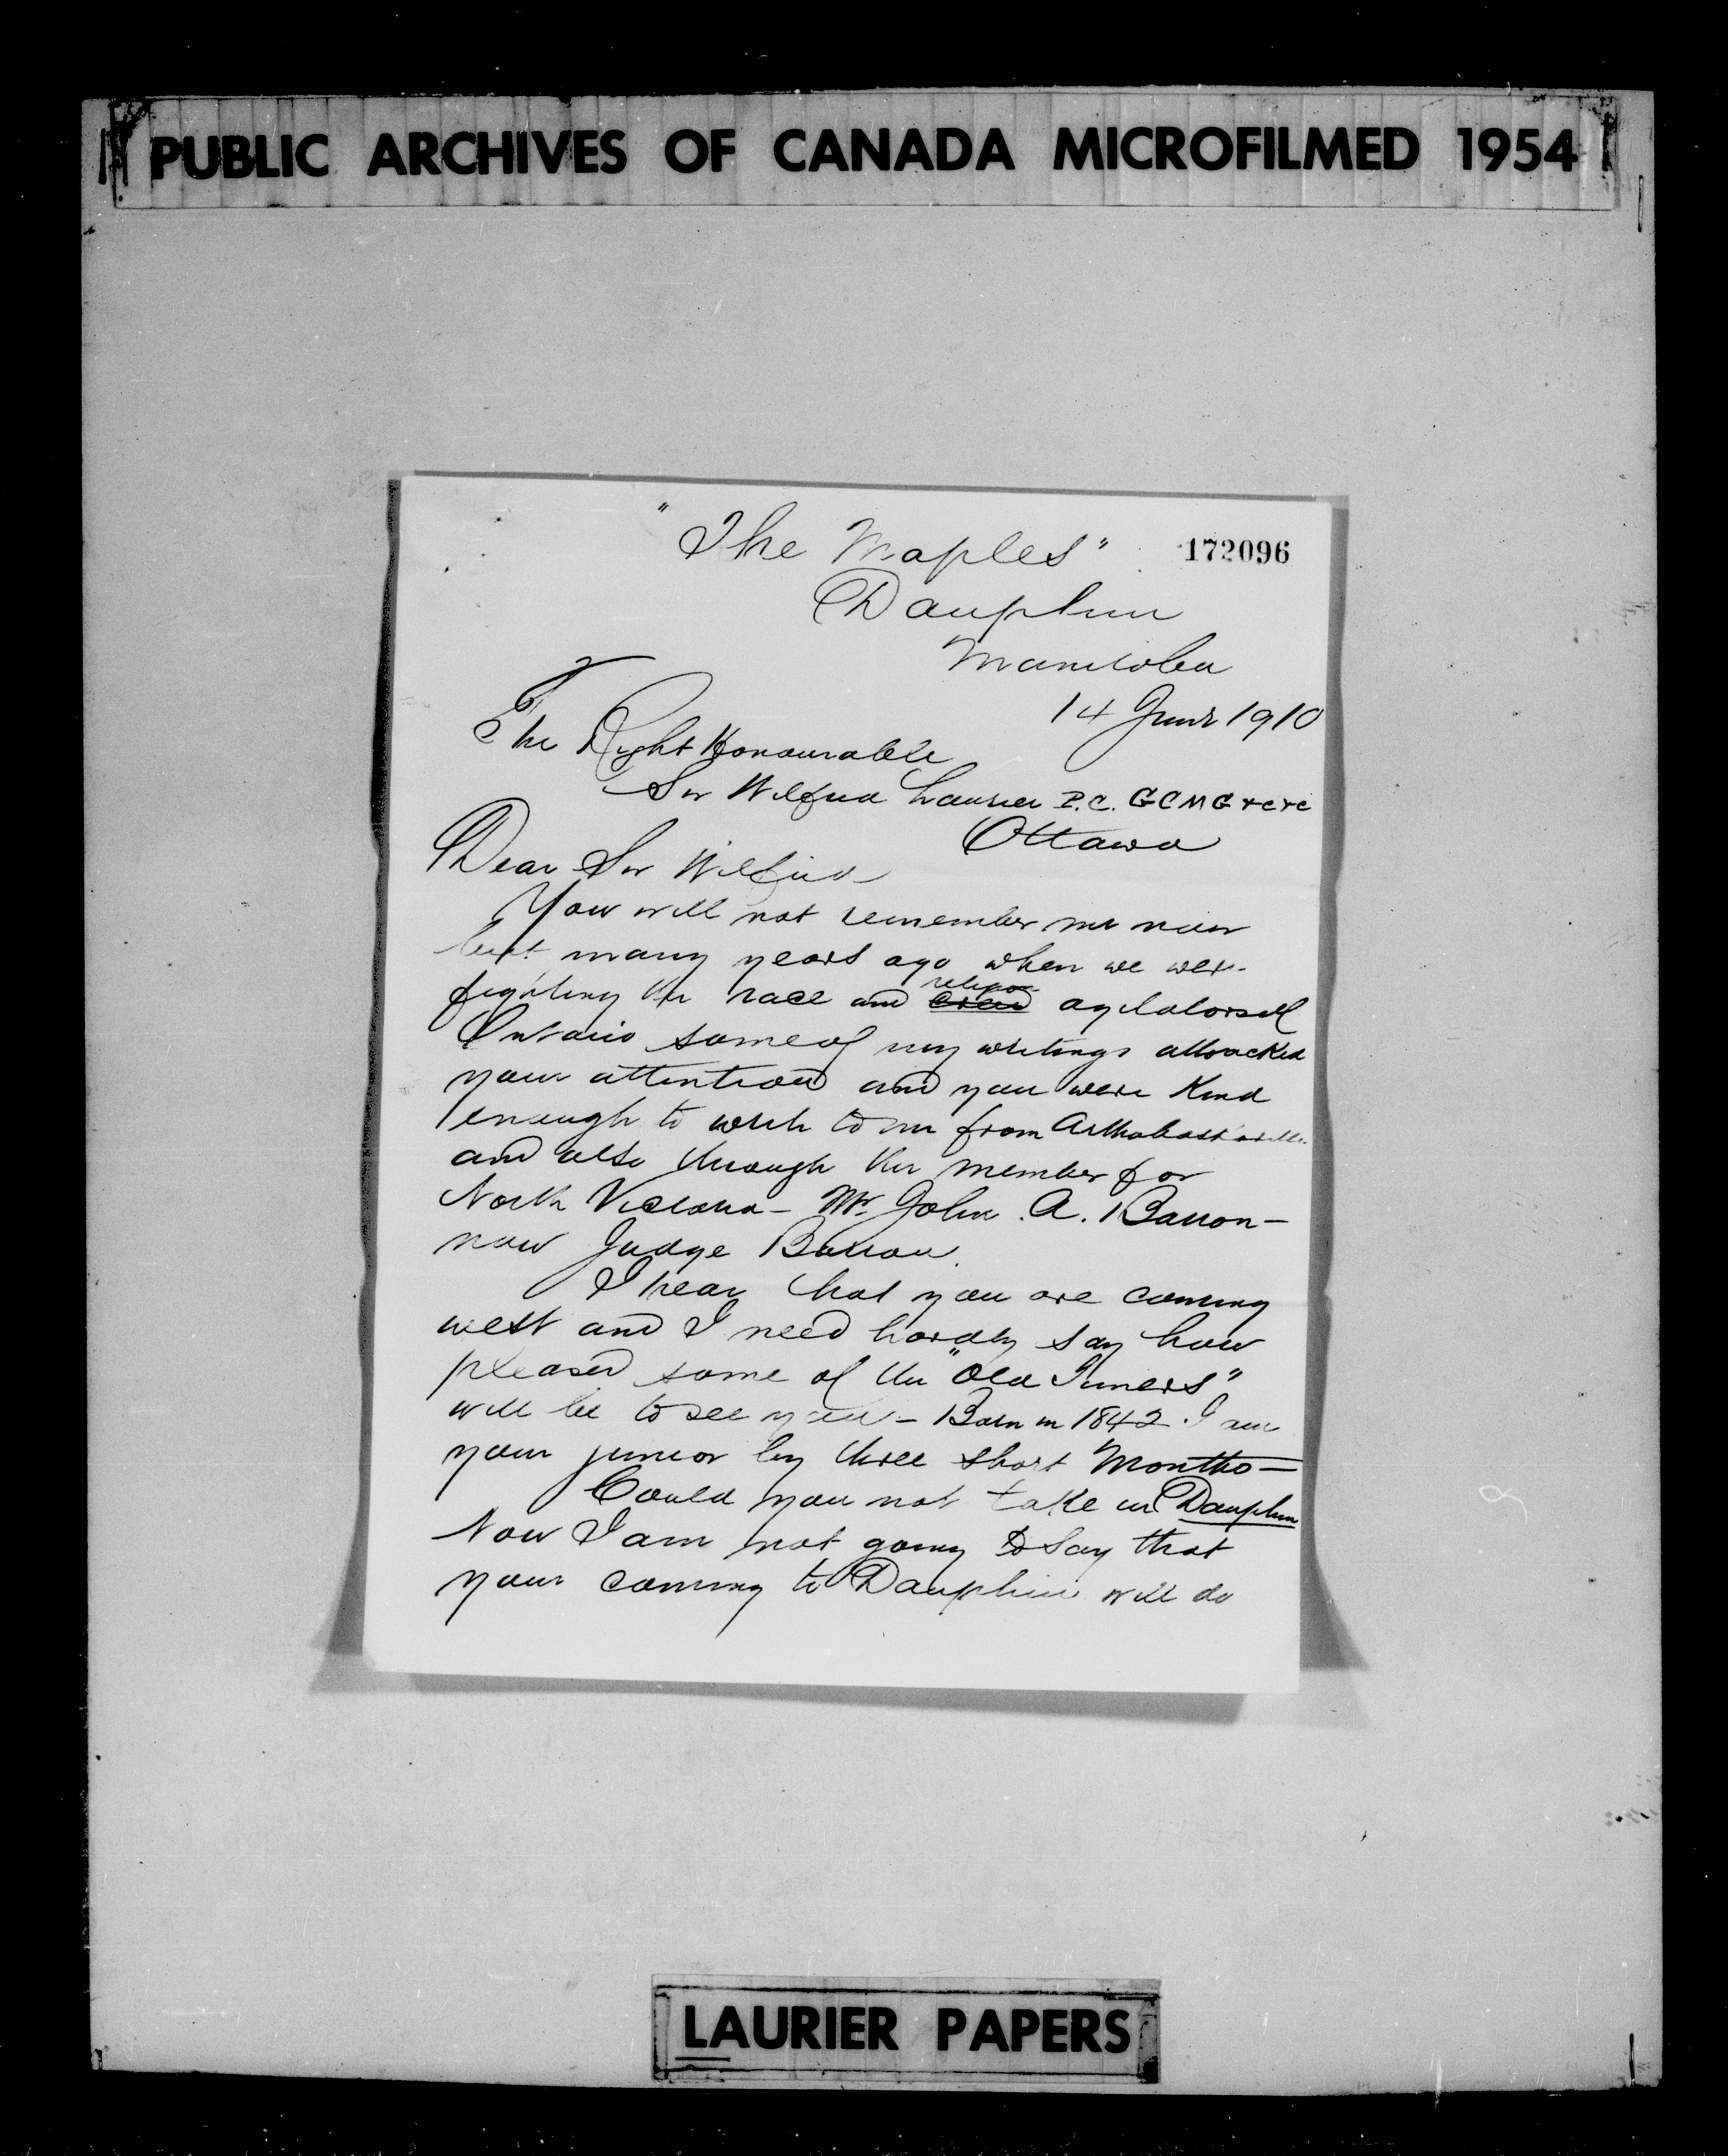 PUBLIC ARCHIVES OF CANADA MICROFILMED 1954
"The Maples"
172096
Dauphin
Manitoba
14 June 1910
The Right Honourable
Sir Wilfrid Laurier P.C. GCMG &c &c
Ottawa
Dear Sir Wilfrid
You will not remember me now
but many years ago when we were
fighting the race and creed religion agitators of
Ontario some of my writings attracted
your attention and you were kind
enough to write to me from Arthabaskaville
and also through the member for
North Victoria - Mr. John A. Barron -
now Judge Barron.
I hear that you are coming
west and I need hardly say how
pleased some of the "Old Timers"
will be to see you - Born in 1842 I am
your junior by three short Months -
Could you not take in Dauphin
Now I am not going to say that
your coming to Dauphin will do
LAURIER PAPERS